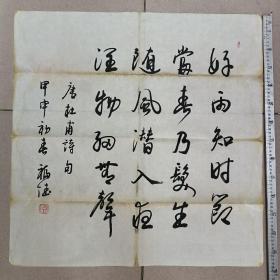 好雨知时節
當春乃發生
随風潜入夜
润物细無聲
唐杜甫詩句
甲申初春